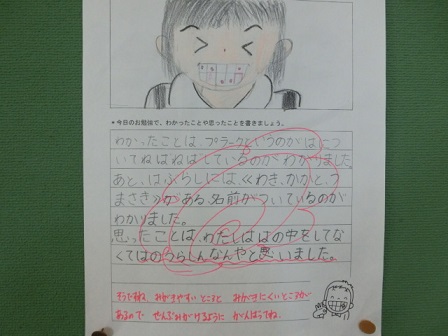 ★今日のお勉強で、わかったことや思ったことを書きましょう。
わかったことは、プラークというのがはにつ
いてねばねばしているのがわかりました。
あと、はぶらしには、くわき、かかと、つ
まさきがある名前がついているのが
わかりました。
思ったことは、わたしははの中をしてな
くてはのうらしんなんやと思いました。
そうですね、みがきやすいところと みがきにくいところが
あるので ぜんぶみがけるように がんばろうね。